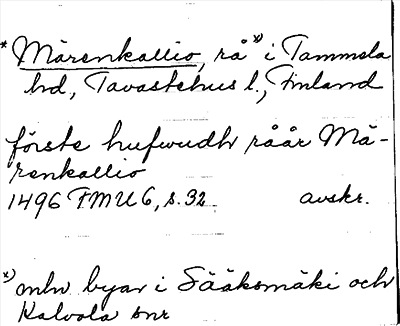 * Märenkallio, rå x) i Tammela
hd, Tavastehus l., Finland
förste hufwudh råår Mä-
renkallio
1496 FMU 6, s. 32 avskr.
x) mln byar i Sääksmäki och
Kalvola snr